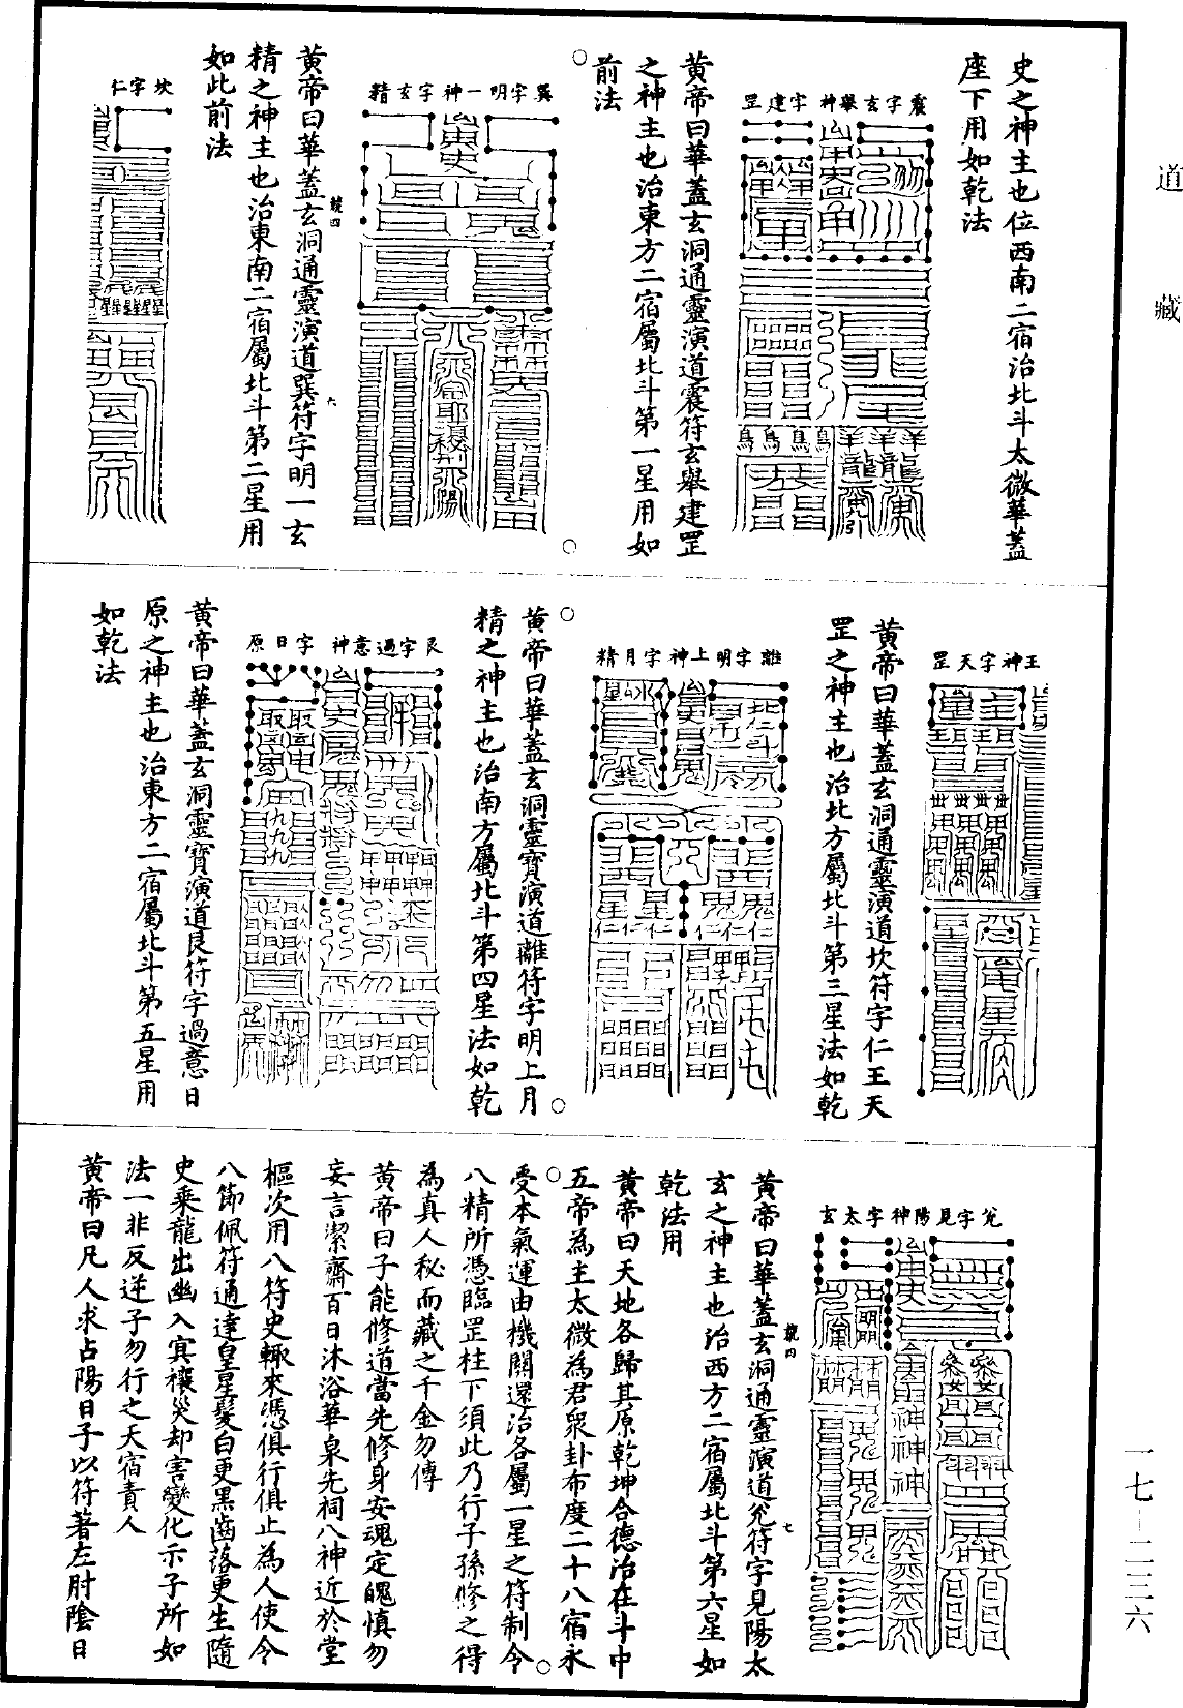 道藏
史之神主也位西南二宿治北斗太微華蓋
座下用如乾法
震字玄舉神字建罡
黄帝曰華蓋玄洞通靈演道震符玄舉建罡
之神主也治東方二宿屬北斗第一星用如
前法
巽字明一神字玄精
黄帝曰華蓋玄洞通靈演道巽符字明一玄
精之神主也治東南二宿屬北斗第二星用
如此前法
坎字仁
王神字天罡
黄帝曰華蓋玄洞通靈演道坎符字仁王天
罡之神主也治北方屬北斗第三星法如乾
離字明上神字月精
黄帝曰華蓋玄洞靈寶演道離符字明上月
精之神主也治南方屬北斗第四星法如乾
艮字過意神字日原
黄帝曰華蓋玄洞靈寶演道艮符字過意日
原之神主也治東方二宿屬北斗第五星用
如乾法
兊字見陽神字太玄
黄帝曰華蓋玄洞通靈演道兊符字見陽太
玄之神主也治西方二宿屬北斗第六星如
乾法用
黄帝曰天地各歸其原乾坤合德治在斗中
五帝為主太微為君衆卦布度二十八宿永
受本氣運由機關還治各屬一星之符制令
八精所憑臨罡柱下須此乃行子孫修之得
為真人秘而藏之千金勿傳
黄帝曰子能修道當先修身安魂定魄慎勿
妄言潔齋百日沐浴華泉先祠八神近於堂
樞次用八符史輒來憑俱行俱止為人使令
八節佩符通達皇星髮白更黑齒落更生隨
史乘龍出幽入冥禳災却害變化示子所如
法一非反逆子勿行之天宿責人
黄帝曰凡人求占陽日子以符著左肘陰日
一七－二三六